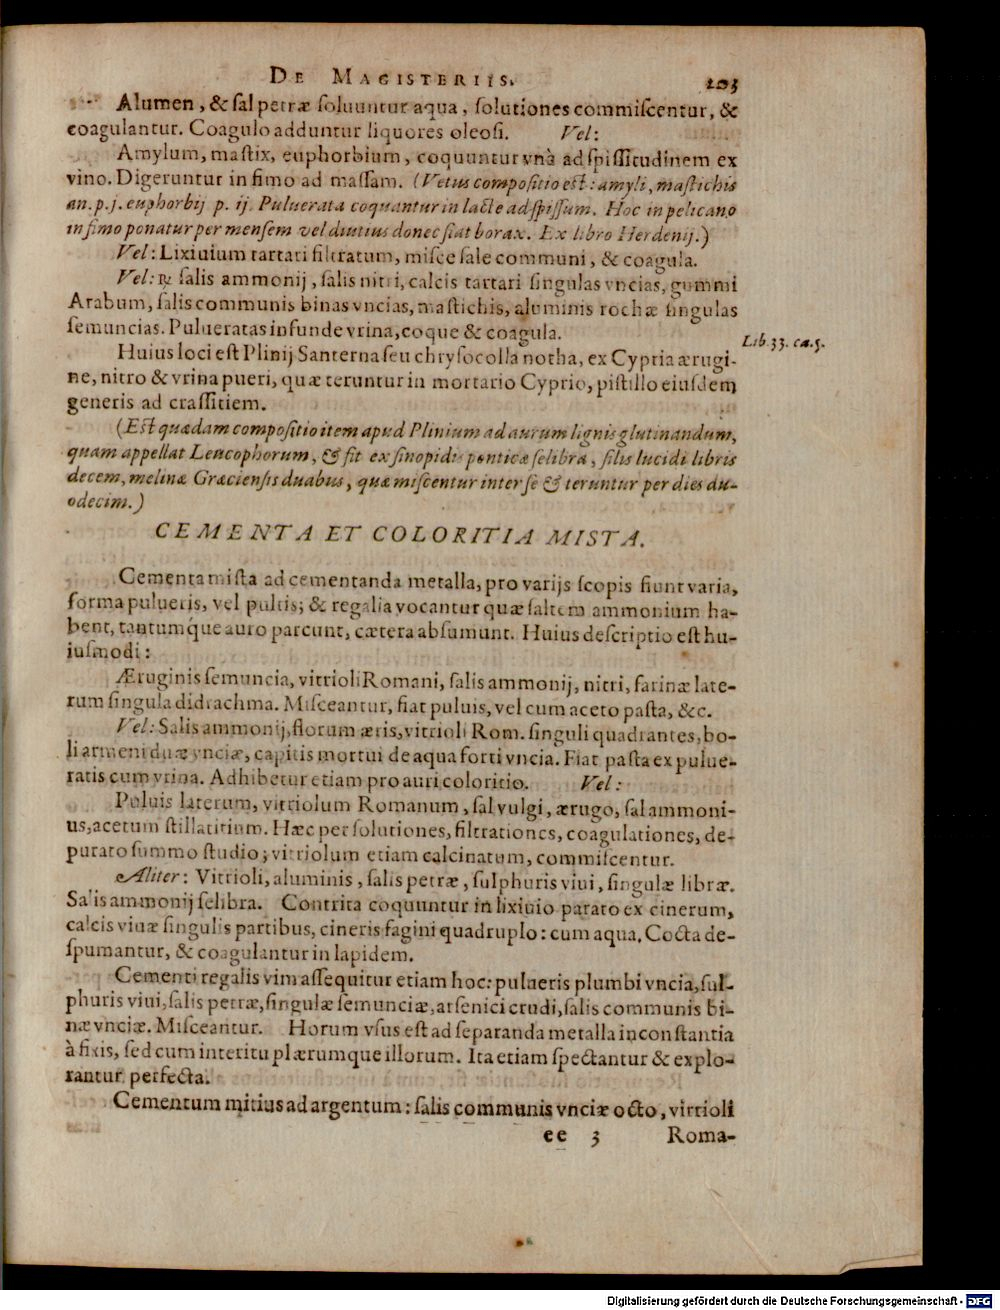 DE MAGISTERIIS. 203
Alumen, & sal petræ soluuntur aqua, solutiones commiscentur, &
coagulantur. Coagulo adduntur liquores oleosi. Vel:
Amylum, mastix, euphorbium, coquuntur vnà ad spissitudinem ex
vino. Digeruntur in fimo ad massam. (Vetus compositio est: amyli, mastichis
an. p. j. euphorbij p. ij. Puluerata coquantur in lacte ad spissum. Hoc in pelicano
in fimo ponatur per mensem vel diutius donec fiat borax. Ex libro Herdenij.)
Vel: Lixiuium tartari filtratum, misce sale communi, & coagula.
Vel: ℞ salis ammonij, salis nitri, calcis tartari singulas vncias, gummi
Arabum, salis communis binas vncias, mastichis, aluminis rochæ singulas
semuncias. Pulueratas infunde vrina, coque & coagula.
Lib. 33. ca. 5.
Huius loci est Plinij Santerna seu chrysocolla notha, ex Cypria ærugi-
ne, nitro & vrina pueri, quæ teruntur in mortario Cyprio, pistillo eiusdem
generis ad crassitiem.
(Est quædam compositio item apud Plinium ad aurum lignis glutinandum,
quam appellat Leucophorum, & fit ex sinopidis ponticæ selibra, silis lucidi libris
decem, melinæ Græciensis duabus, quæ miscentur inter se & teruntur per dies du-
odecim.)
CEMENTA ET COLORITIA MISTA.
Cementa mista ad cementanda metalla, pro varijs scopis fiunt varia,
forma pulueris, vel pultis; & regalia vocantur quæ saltem ammonium ha-
bent, tantumq́ue auro parcunt, cætera absumunt. Huius descriptio est hu-
iusmodi:
Æruginis semuncia, vitrioli Romani, salis ammonij, nitri, farinæ late-
rum singula didrachma. Misceantur, fiat puluis, vel cum aceto pasta, &c.
Vel: Salis ammonij, florum æris, vitrioli Rom. singuli quadrantes, bo-
li armeni duæ vnciæ, capitis mortui de aqua forti vncia. Fiat pasta ex pulue-
ratis cum vrina. Adhibetur etiam pro auri coloritio. Vel:
Puluis laterum, vitriolum Romanum, sal vulgi, ærugo, sal ammoni-
us, acetum stillatitium. Hæc per solutiones, filtrationes, coagulationes, de-
purato summo studio; vitriolum etiam calcinatum, commiscentur.
Aliter: Vitrioli, aluminis, salis petræ, sulphuris viui, singulæ libræ.
Salis ammonij selibra. Contrita coquuntur in lixiuio parato ex cinerum,
calcis viuæ singulis partibus, cineris fagini quadruplo: cum aqua. Cocta de-
spumantur, & coagulantur in lapidem.
Cementi regalis vim assequitur etiam hoc: pulueris plumbi vncia, sul-
phuris viui, salis petræ, singulæ semunciæ, arsenici crudi, salis communis bi-
næ vnciæ. Misceantur. Horum vsus est ad separanda metalla inconstantia
à fixis, sed cum interitu plærumque illorum. Ita etiam spectantur & explo-
rantur perfecta.
Cementum mitius ad argentum: salis communis vnciæ octo, vitrioli
ee 3 Roma-
Digitalisierung gefördert durch die Deutsche Forschungsgemeinschaft - DFG